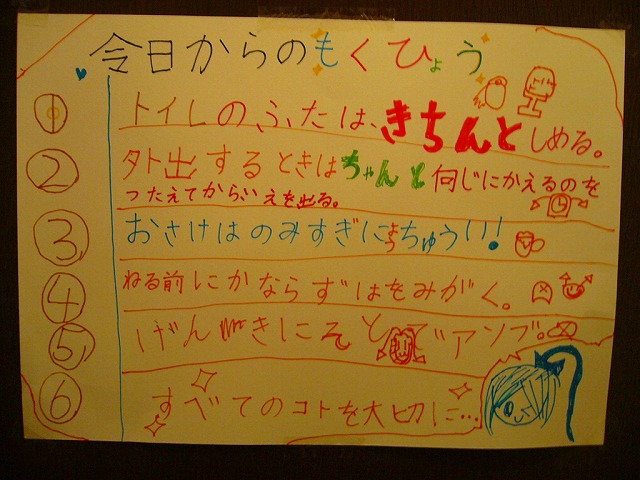 今日からのもくひょう
① トイレのふたは、きちんとしめる。
② 外出するときはちゃんと何じにかえるのを
つたえてからいえを出る。
③ おさけはのみすぎによっちゅうい!
④ ねる前にかならずはをみがく。
⑤ げんきにそとであそぶ。
⑥ すべてのコトを大切に…